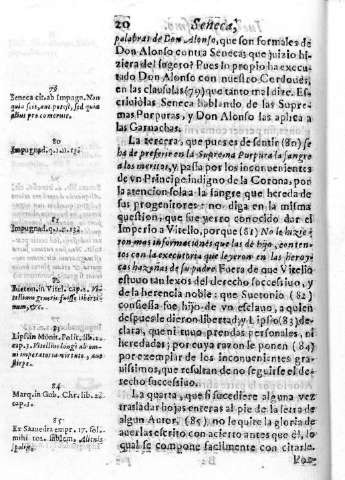 20 Seneca,
palabras de Don Alonso, que son formales de
Don Alonso contra Seneca; que juizio hi
ziera del sugeto? Pues lo propio ha execu-
tado Don Alonso con nuestro Cordoues,
en las clausulas (79) que tanto mal dize. Es-
criuiolas Seneca hablando de las Supre-
mas Purpuras, y Don Alonso las aplica a
las Garnachas.
La tercera, que pues es de sentir (80) se
ha de preferir en la Suprema Purpura la sangre
a los meritos, y passa por los inconuenientes
de vn Principe indigno de la Corona, por
la atencion sola a la sangre que hereda de
sus progenitores: no diga en la misma
question, que fue yerro conocido dar el
Imperio a Vitelio, porque (81) No le hizieron
mas informaciones que las de hijo, conten-
tos con la executoria que leyeron en las heroy-
cas hazañas de su padre. Fuera de que Vitelio
estuuo tan lexos del derecho successiuo, y
de la herencia noble: que Suetonio (82)
confiessa fue hijo de vn esclauo, a quien
despues le dieron libertad; y Lipsio (83) de-
clara, que ni tuuo prendas personales, ni
heredadas; por cuya razon le ponen (84)
por exemplar de los inconuenientes gra-
uissimos, que resultan de no seguirse el de-
recho successiuo.
La quarta, que si sucediere alguna vez
trasladar hojas enteras al pie de la letra de
algun Autor. (85) no le quite la gloria de
auerlas escrito con acierto antes que él, lo
qual se compone facilmente con citarle.
79
Seneca cit. ab Impugn. Non
quia sit, aut putat, sed quia
alius pro
80
Impugnad. q. 1. n. 132
Impugnad. q. 1. n. 132.
Sueton. in Vitel. cap. 2.
&c.
Lips. in Monit. Polit. lib. 2.
cap.
84
Marq. in Gob. Chr. lib. 2.
cap. 1.
85
Ex Saauedra empr. 17.